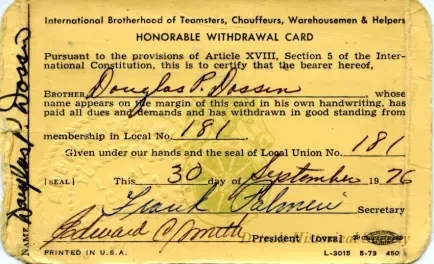 International Brotherhood of Teamsters, Chauffeurs, Warehousemen & Helpers
HONORABLE WITHDRAWAL CARD
Pursuant to the provisions of Article XVIII, Section 5 of the Inter-
national Constitution, this is to certify that the bearer hereof,
BROTHER Douglas P. Dossin, whose
name appears on the margin of this card in his own handwriting, has
paid all dues and demands and has withdrawn in good standing from
membership in Local No. 181.
Given under our hands and the seal of Local Union No. 181
[SEAL] This 30 day of September 1976
Frank Palmeri Secretary
Edward C. Smith President [OVER]
PRINTED IN U.S.A. L-3015 5-73 450
NAME Douglas P Dossin